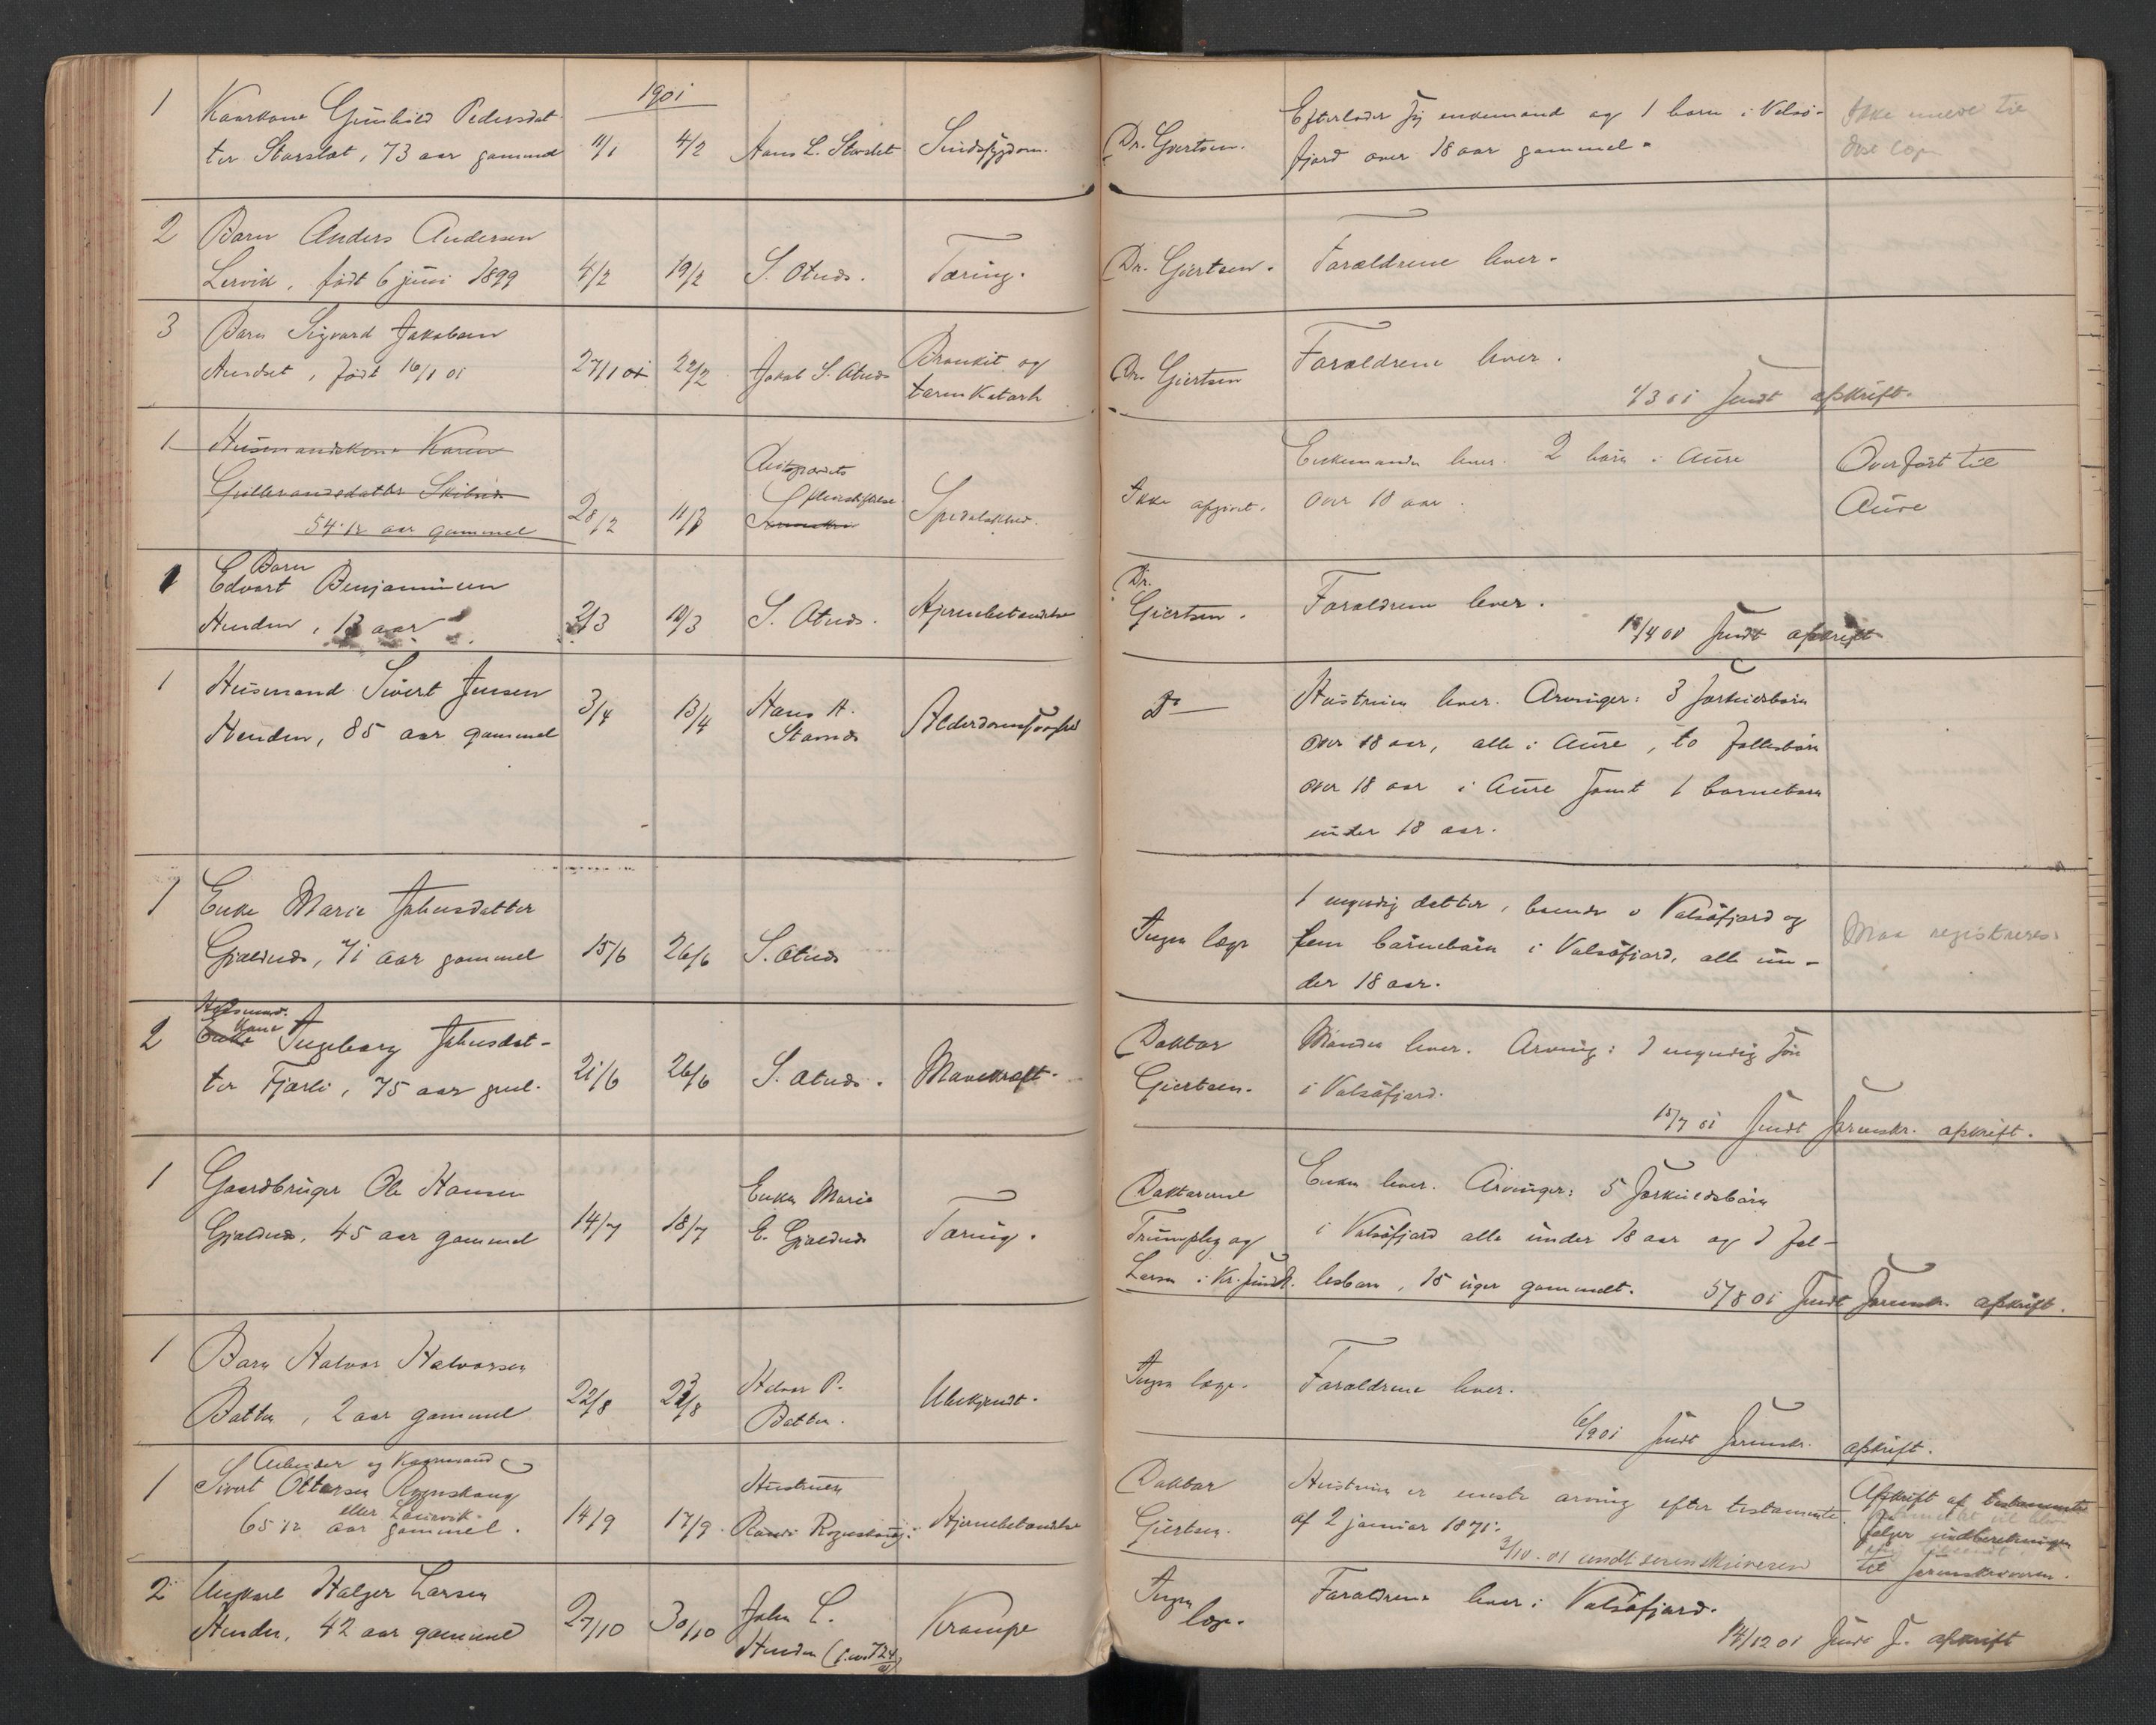 1901
1 Kaarkone Gunhild Pedersdat-
ter Storslæt, 73 aar gammel 11/1 4/2 Hans L. Storslet Sindssygdom. Dr. Giertsen. Efterlader sig enkemand og 1 barn i Valsø-
fjord over 18 aar gammel. Ikke
2 Barn Anders Andersen
Lervik, født 6 juni 1899 4/2 19/2 S. Otnes. Tæring. Dr. Giertsen. Forældrene lever.
3 Barn Sigvard Jakobsen
født 16/1 01 27/1 01 22/2 Jakob S. Otnes Bronkit og
tarmkatarh Dr. Giertsen Forældrene lever.
1/3 01 sendt afskrift.
1 Husmandskone Karen
54 1/2 aar gammel 28/2 11/3 Spedalskhed. Ikke afgivet. Enkemanden lever. 2 børn i Aure
over 18 aar. Overført til
Aure
1 Barn
Edvart Benjaminsen
Henden, 13 aar 2/3 10/3 S. Otnes. Hjernebetændelse Dr.
Giertsen. Forældrene lever.
sendt afskrift
1 Husmand Sivert Jensen
Henden, 85 aar gammel 3/4 13/4 Hans H.
Stornes Alderdomssvaghed Do Hustruen lever. Arvinger: 3 særkuldsbørn
over 18 aar, alle i Aure, to fellesbørn
over 18 aar i Aure samt 1 barnebarn
under 18 aar.
1 Enke Marie Johnsdatter
Gjeldnes, 71 aar gammel 15/6 26/6 S. Otnes Ingen læge 1 myndig datter, boende i Valsøfjord og
fem barnebørn i Valsøfjord, alle un-
der 18 aar. Maa registreres.
2 Husmands
kone
Enke Ingeborg Johnsdat-
ter Fjærli, 75 aar gml. 21/6 26/6 S. Otnes. Mavekræft. Doktor
Giertsen. Manden lever. Arving: 1 myndig søn
i Valsøfjord.
15/7 01 sendt sorenskr. afskrift.
1 Gaardbruger Ole Hansen
Gjeldnes, 45 aar gammel 14/7 18/7 Enken Marie
E. Gjeldnes Tæring. Doktorerne
Trumpley og
Larsen i Kr.sund. Enken lever. Arvinger: 5 særkuldsbørn
i Valsøfjord alle under 18 aar og 1 fel-
lesbarn, 15 uger gammelt. 5/8 01 sendt sorenskr. afskrift.
1 Barn Halvor Halvorsen
Botten, 2 aar gammel 22/8 23/8 Halvor P.
Botten. Ubekjendt. Ingen læge. Forældrene lever.
6/9 01 sendt sorenskr. afskrift.
1 Arbeider og Kaarmand
Sivert Ottersen Rognskaug
eller Leirvik
65 1/2 aar gammel. 14/9 17/9 Hustruen
Randi Rognskaug. Hjernebetændelse Doktor
Giertsen. Hustruen er eneste arving efter testamente
af 2 januar 1871.
3/10-01 sendt sorenskriveren Afskrift af testamentet
følger indberetningen
til sorenskriveren.
2 Ungkarl Halger Larsen
Henden, 42 aar gammel 27/10 30/10 John L.
Henden Krampe Ingen
læge. Forældrene lever i Valsøfjord.
14/12 01 sendt S. afskrift